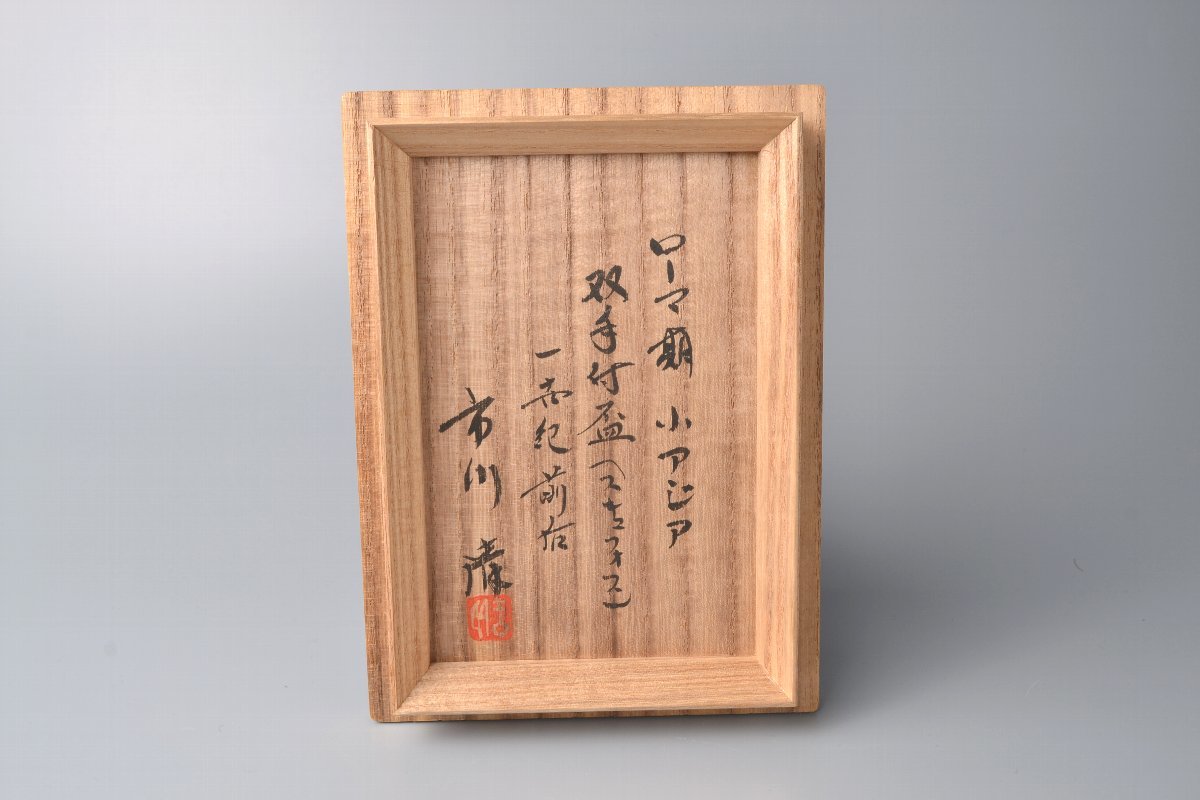 ローマ期 小アジア
双手付盃(スキュフォス)
一世紀前后
市川 清